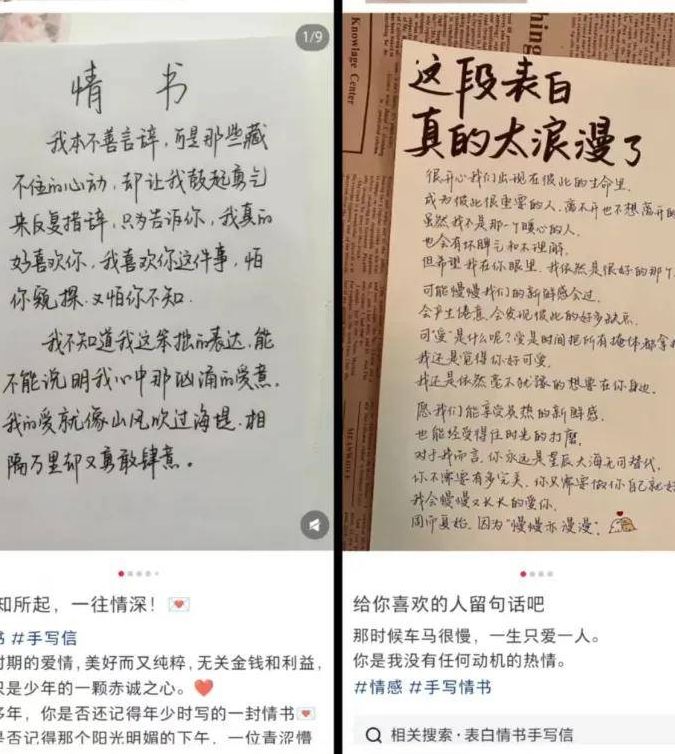 1/9
情 书
我本不善言辞,可是那些藏
不住的心动,却让我鼓起勇气
来反复措辞,只为告诉你,我真的
好喜欢你,我喜欢你这件事,怕
你窥探.又怕你不知.
我不知道我这笨拙的表达,能
不能说明我心中那汹涌的爱意.
我的爱就像山风吹过海堤.相
隔万里却又勇敢肆意。
知所起,一往情深!
书 #手写信
时期的爱情,美好而又纯粹,无关金钱和利益,
只是少年的一颗赤诚之心。
多年,你是否还记得年少时写的一封情书
是否记得那个阳光明媚的下午,一位青涩懵
Knowlage Center
hing
MEANWHILE
这段表白
真的太浪漫了
很开心我们出现在彼此的生命里.
成为彼此很重要的人.离不开也不想离开的
虽然我不是那个暖心的人.
也会有坏脾气和不理解.
但希望我在你眼里.我依然是很好的那个.
可能慢慢我们的新鲜感会过.
会产生倦意.会发现彼此的好多缺点.
可爱是什么呢?爱是时间把所有掩体都拿
我还是觉得你好可爱.
我还是依然毫不犹豫的想要在你身边.
愿我们能享受炙热的新鲜感.
也能经受得住时光的打磨.
对于我而言.你永远是星辰大海无可替代.
你不需要有多完美.你只需要做你自己就好
我会慢慢又长长的爱你.
周而复始.因为“慢慢亦漫漫”.
给你喜欢的人留句话吧
那时候车马很慢,一生只爱一人。
你是我没有任何动机的热情。
#情感 #手写情书
相关搜索·表白情书手写信